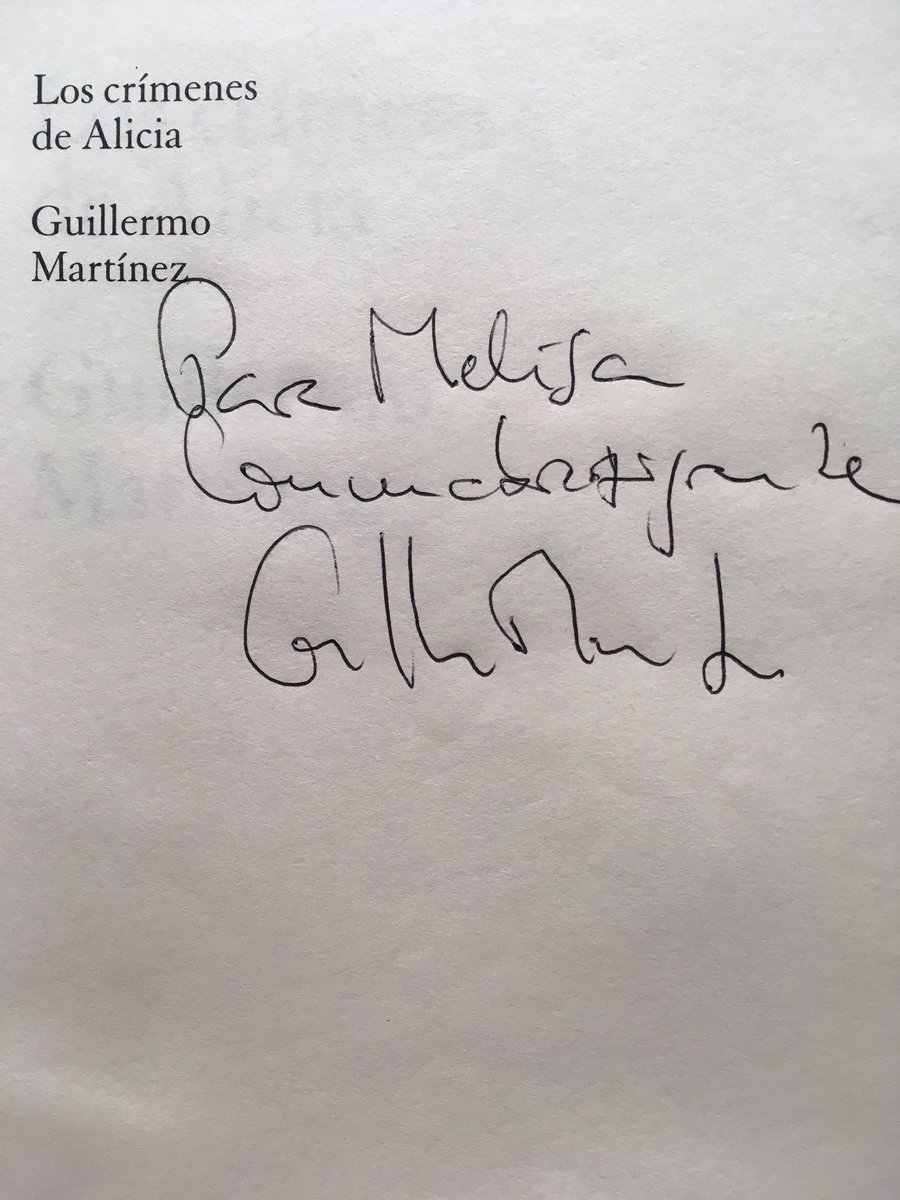 Los crímenes
de Alicia
Guillermo
Martínez
Para Melisa
Con un abrazo grande